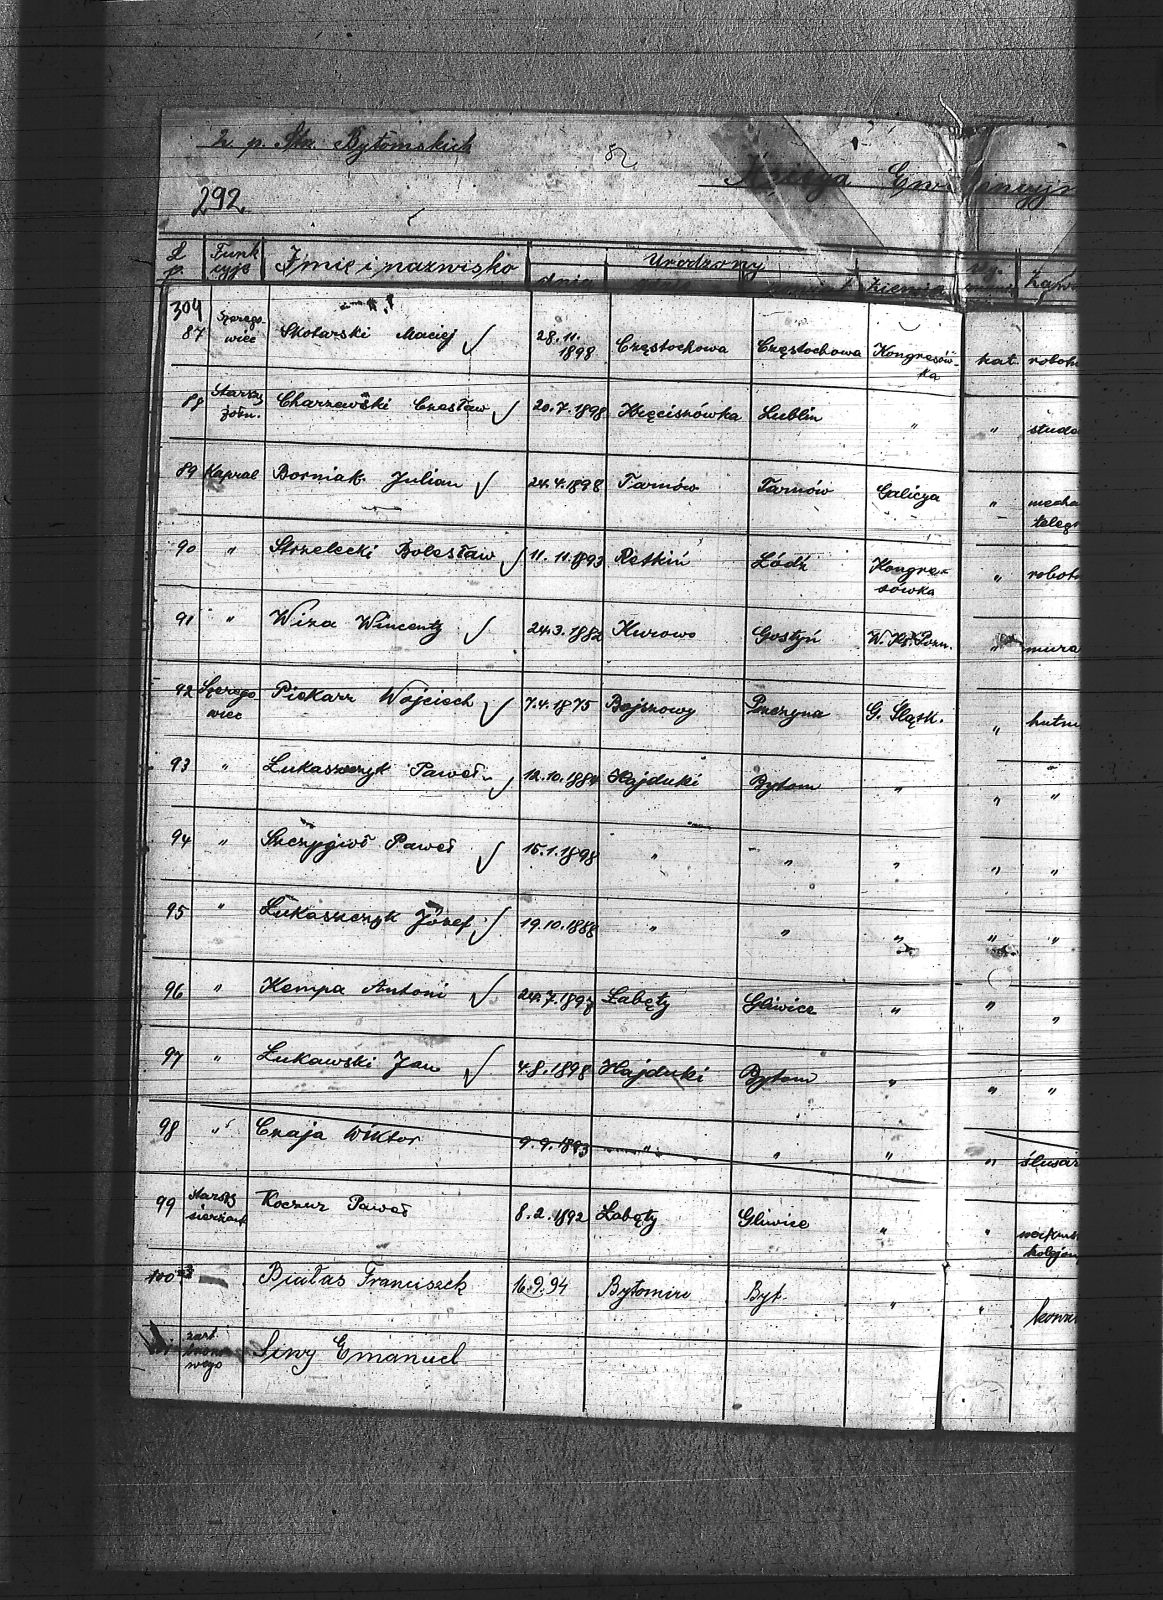 2 p. Strz. Bytomskich
52
Księga Ewidencyjn
292
L. p. Funkcyje Imię i nazwisko Urodzony wyznanie Zaw
dnia powiat ziemia
304
87 Szeregowiec Skotarski Maciej 28.11.1898 Częstochowa Częstochowa Kongresówka kat. robotn
88 Starszy żołn. Charzewski Czesław 20.7.1898 Lublin " " stude
89 Kapral Borniak Julian 24.4.1898 Tarnów Tarnów Galicya " mecha telegr
90 " Strzelecki Bolesław 11.11.1893 Retkiń Łódź Kongresówka " robotn
91 " Wiza Wincenty 24.3.1882 Kurowo Gostyń W. Ks. Pozn. " mura
92 Szeregowiec Piekarz Wojciech 7.4.1875 Bojszowy Pszczyna G. Śląsk. " hutni
93 " Lukaszczyk Paweł 12.10.1884 Hajduki Bytom " " "
94 " Szczygioł Paweł 15.1.1898 " " " " "
95 " Łukaszczyk Józef 19.10.1888 " " " " "
96 " Kempa Antoni 24.7.1897 Łabęty Gliwice " " "
97 " Łukawski Jan 4.8.1898 Hajduki Bytom " " "
98 " Czaja Wiktor 9.9.1893 " " " " ślusar
99 Starszy sierżant Koczur Paweł 8.2.1892 Łabęty Gliwice " " kolejow
100 Białas Franciszek 16.9.94 Byt. " "
Siwy Emanuel